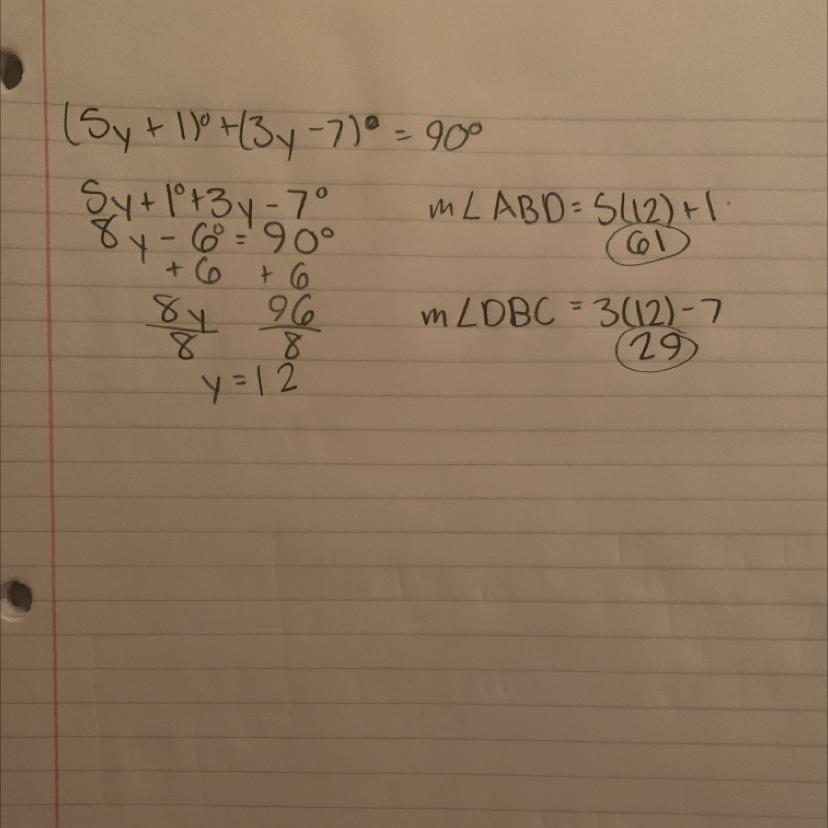 (5y + 1)° + (3y - 7)° = 90°
5y + 1° + 3y - 7°
8y - 6° = 90°
+ 6 + 6
8y 96
8 8
y = 12
m∠ABD = 5(12) + 1
61
m∠DBC = 3(12) - 7
29